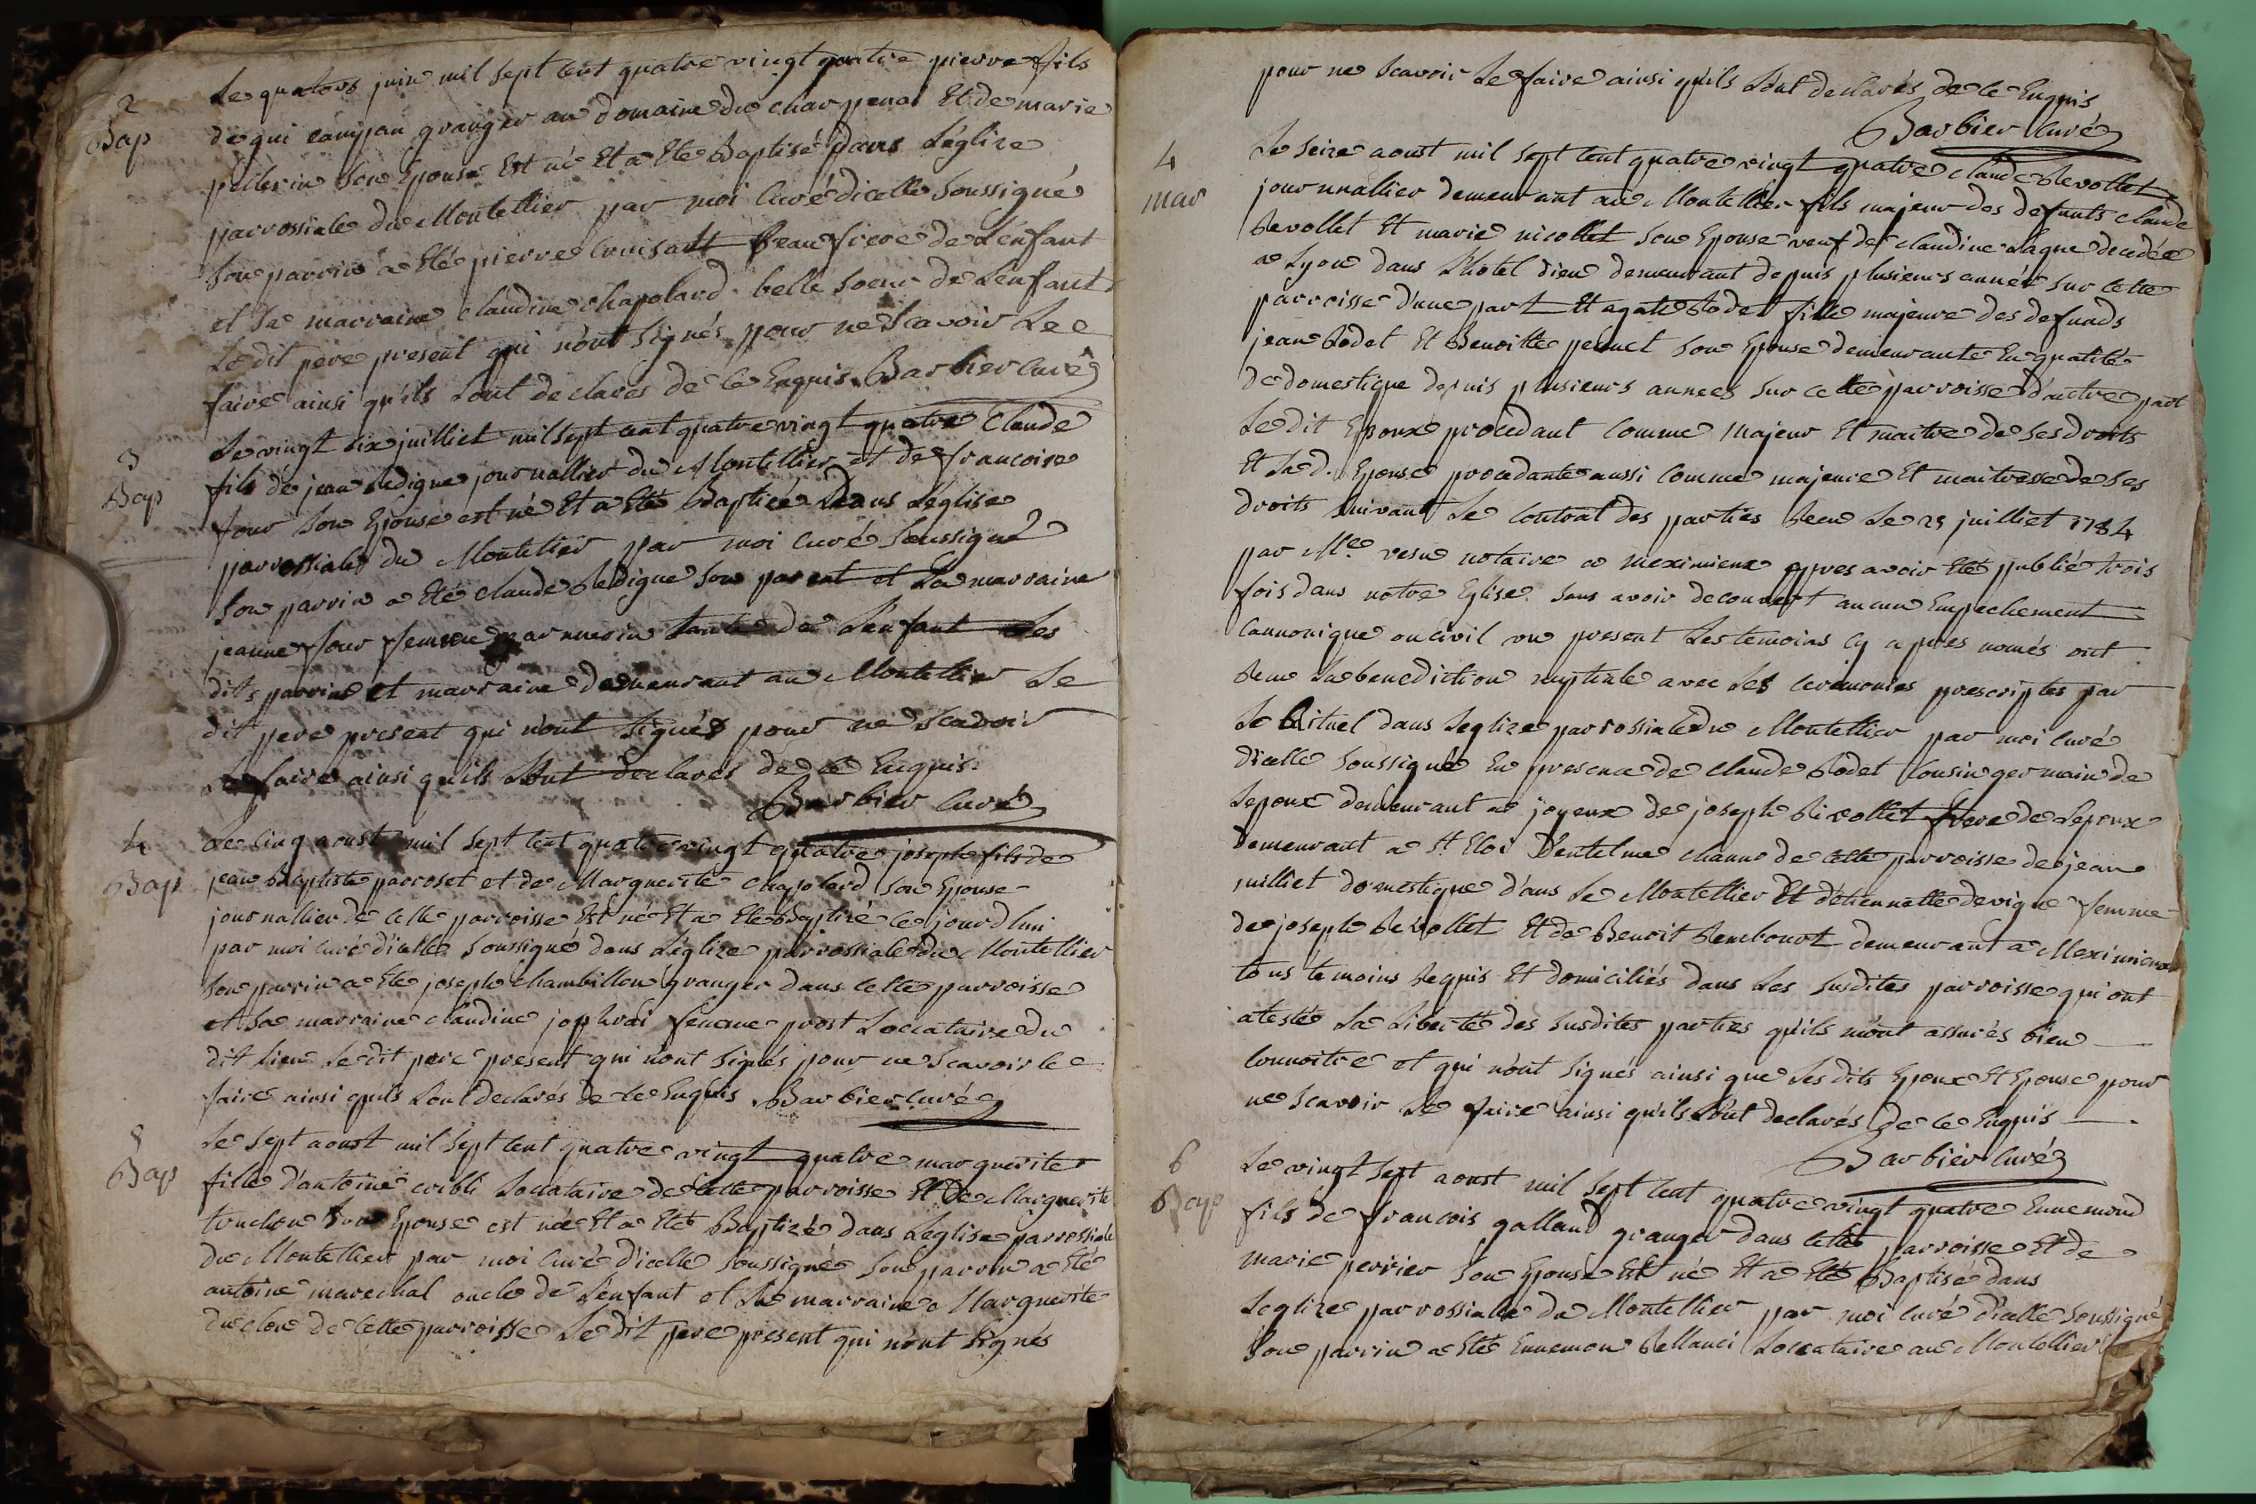 2
Bap
Le quators juin mil sept cent quatre vingt quatre pierre fils
de gui campan granger au domaine du charpenai Et de marie
pelerin son Epouse Est né Et a Eté Baptisé dans L'églize
parrossiale du Montellier par moi Curé dicelle soussigné
son parrin a Eté pierre Cruisatt beaufrere de L'enfant
et sa marraine Claudine chapoland belle soeur de L'enfant
Le dit pere present qui nont signés pour ne scavoir Le
faire ainsi qu'ils sont declarés de ce Enquis Barbier Curé
3
Bap
Le vingt six juilliet mil sept cent quatre vingt quatre Claude
fils de jean Redigue journallier du Montellier et de francoise
four son Epouse est né Et a Eté Baptisé Dans L'églize
parrossiale du Montellier par moi curé soussigné
son parrin a Eté claude Redigue son parent et La marraine
jeanne four femme tante de L'enfant Les
dits parrin et marraine demeurant au Montellier Le
dit pere present qui n'ont signés pour ne scavoir
Le faire ainsi qu'ils sont declarés de ce Enquis
Barbier Curé
4
Bap
Le cinq aoust mil sept cent quatre vingt quatre joseph fils de
jean Baptiste parroset et de Marguerite chapoland son Epouse
journallier de cette parroisse Est né Et a Eté Baptizé ce jourd'hui
par moi curé d'icelle soussigné dans L'églize parrossiale du Montellier
son parrin a Eté joseph chambillon granger dans cette parroisse
et sa marraine claudine femme prost Loccataire du
dit lieu Le dit pere present qui n'ont signés pour ne scavoir le
faire ainsi qu'ils sont declarés de ce Enquis Barbier Curé
5
Bap
Le sept aoust mil sept cent quatre vingt quatre marguerite
fille d'antoine Loccataire de cette parroisse Et de Marguerite
son Epouse est née Et a Eté Baptizé dans L'eglise parrossiale
du Montellier par moi Curé d'icelle soussigné son parrin a Eté
antoine marechal oncle de L'enfant et sa marraine Marguerite
du clos de cette parroisse Le dit pere present qui n'ont signés
pour ne scavoir Le faire ainsi qu'ils sont declarés de ce Enquis
Barbier Curé
4
mar
Le seize aoust mil sept cent quatre vingt quatre claude Revollet
journnallier demeurant au Montellier fils majeur des defunts claude
Revollet Et marie nicollet son Epouse veuf de claudine decedée
a Lyon dans L'hotel dieu demeurant depuis plusieurs année sur cette
parroisse d'une part Et agate Rodet fille majeure des defunds
jean Rodet Et Benoitte son Epouse demeurante En qualité
de domestique depuis plusieurs annees sur cette parroisse d'autre part
Le dit Epoux procedant comme majeur Et maitre de ses droits
Et La d. Epouse procedante aussi comme majeure Et maitresse de ses
droits suivant Le contrat des parties Recu Le 25 juilliet 1784
par Me. notaire a meximieux appres avoir Eté publié trois
fois dans notre Eglise sans avoir decouvert aucun Empechement
Cannonique ou civil present Les temoins cy apres només ont
Recu La benediction nuptiale avec Les ceremonies prescriptes par
Le Rituel dans L'eglize parrossiale du Montellier par moi Curé
d'icelle soussigné En presence de claude Rodet Cousin germain de
L'epoux demeurant a joyeux de joseph Revollet frere de L'epoux
demeurant a St. Eloi D'entelme channe de cette parroisse de jean
milliet domestique dans Le Montellier Et d'etiennette devigne femme
de joseph Revollet Et de Benoit demeurant a Meximieux
tous temoins Requis Et domiciliés dans Les susdites parroisse qui ont
atesté La Liberté des susdites parties qu'ils m'ont assurés bien
connoitre et qui n'ont signés ainsi que Les dits Epoux Et Epouse pour
ne scavoir Le faire ainsi qu'ils sont declarés de ce Enquis
Barbier Curé
6
Bap
Le vingt sept aoust mil sept cent quatre vingt quatre Ennemond
fils de francois galland granger dans cette parroisse Et de
marie perrier son Epouse Est né Et a Eté Baptisé dans
L'eglize parrossiale du Montellier par moi Curé d'icelle soussigné
son parrin a Eté Ennemon Loccataire au Montellier